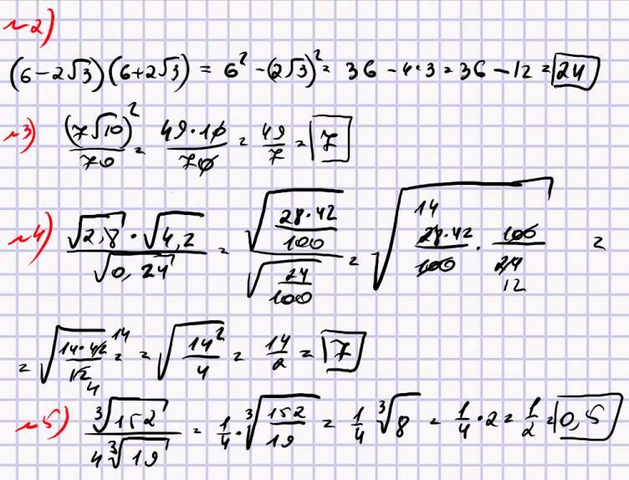 №2)
(6-2√3)(6+2√3) = 6² - (2√3)² = 36 - 4·3 = 36 - 12 = 24
№3) (7√10)²/70 = 49·10/70 = 49/7 = 7
№4) √2,8 · √4,2 / √0,24 = √(28·42/100) / √(24/100) = √(14 28·42/100 · 100/24 12) =
= √(14·42/12 14 4) = √(14²/4) = 14/2 = 7
№5) ∛152 / 4∛19 = 1/4 · ∛(152/19) = 1/4 ∛8 = 1/4 · 2 = 1/2 = 0,5